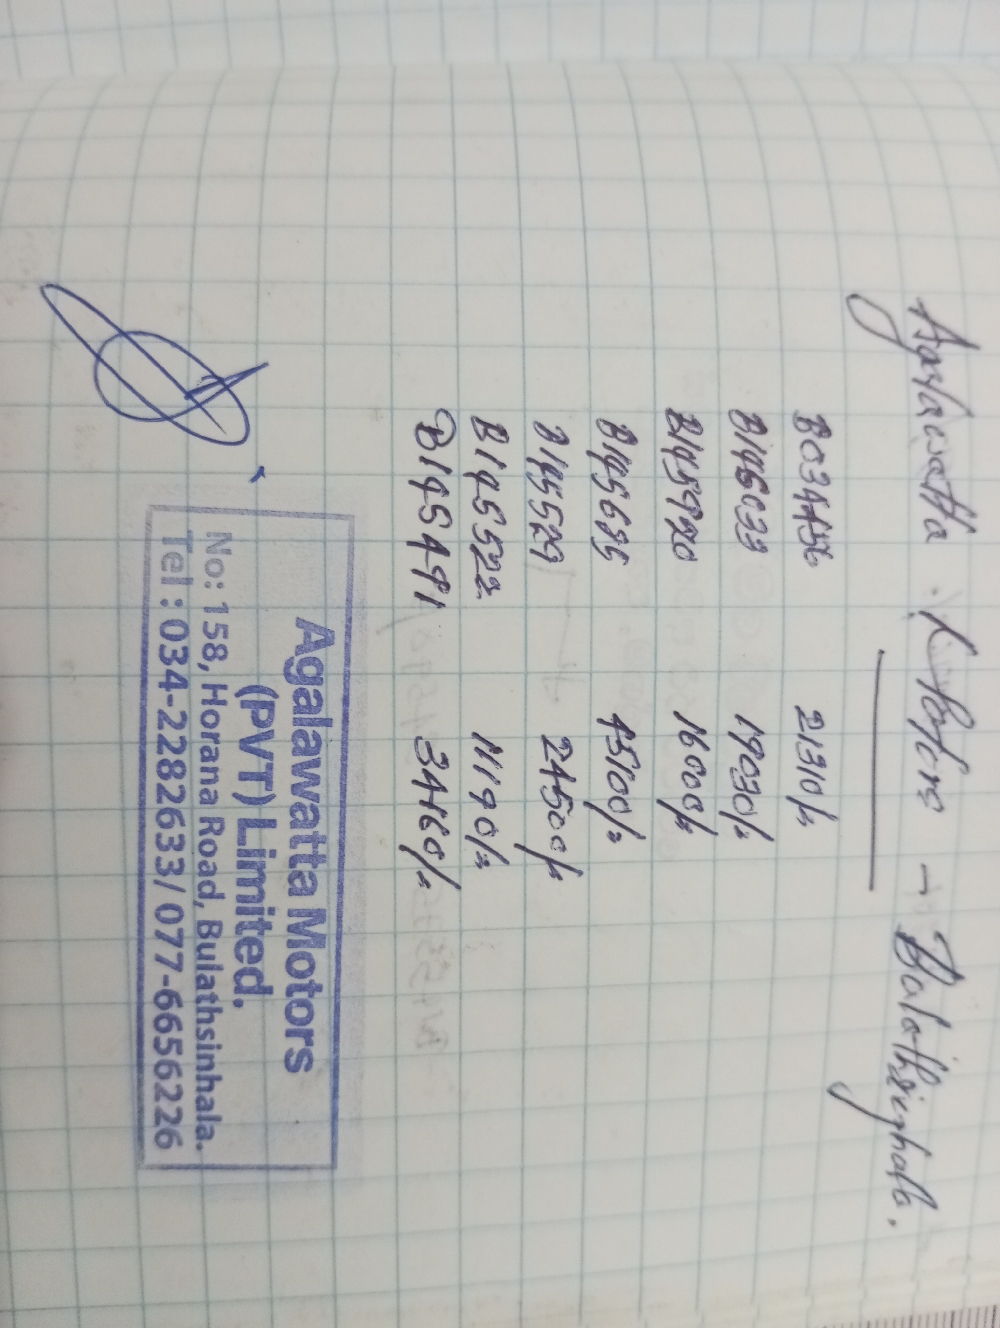 Agalawatta Motors - Bulathsinghala.
B034456 21310/=
B146033 19030/=
B145920 16000/=
B145695 45100/=
B145529 24500/=
B145522 11190/=
B145491 34160/=
Agalawatta Motors
(PVT) Limited.
No: 158, Horana Road, Bulathsinhala.
Tel : 034-2282633/ 077-6656226